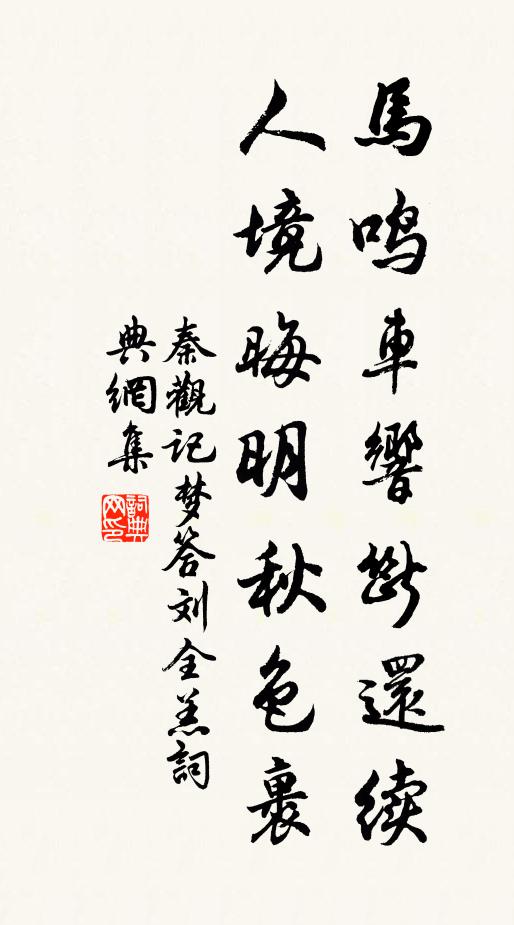 馬鳴車響斷還續
人境晦明秋色裏
秦觀记梦答刘全美詞
典網集
詞典网印